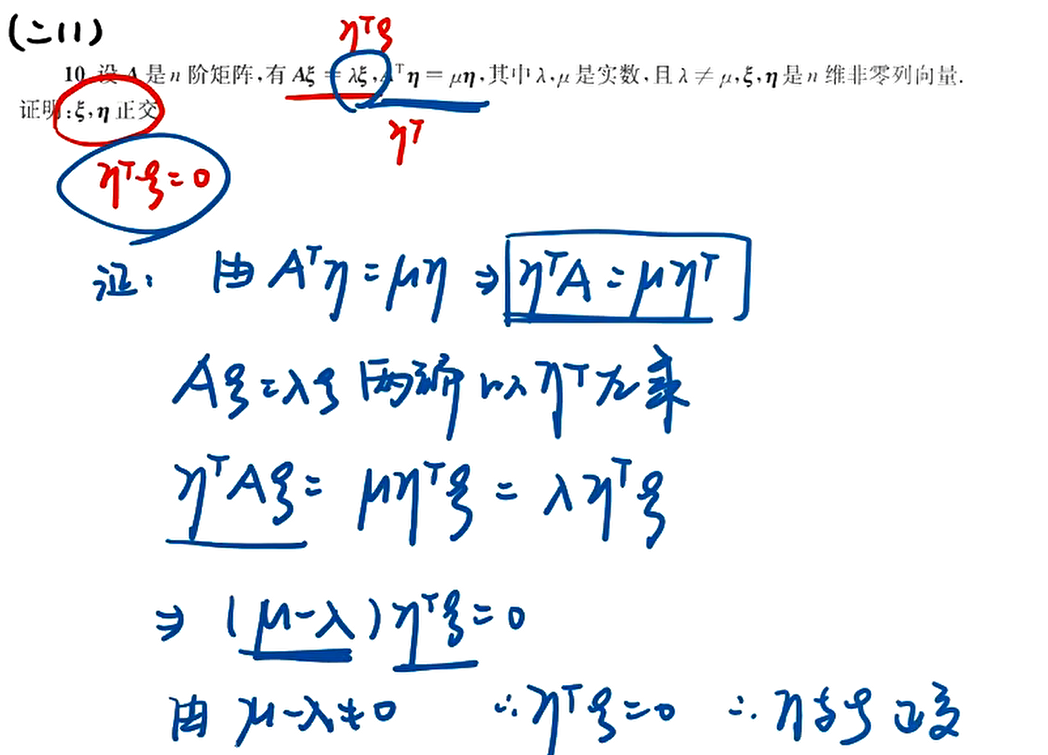 (二11)
η^Tξ
10. 设 A 是 n 阶矩阵,有 Aξ = λξ, A^Tη = μη, 其中 λ, μ 是实数, 且 λ ≠ μ, ξ, η 是 n 维非零列向量.
证明: ξ, η 正交
η^T
η^Tξ = 0
证: 由 A^Tη = μη ⇒ η^TA = μη^T
Aξ = λξ 两端以 η^T 左乘
η^TAξ = μη^Tξ = λη^Tξ
⇒ (μ-λ)η^Tξ = 0
由 μ-λ≠0 ∴ η^Tξ = 0 ∴ η与ξ 正交